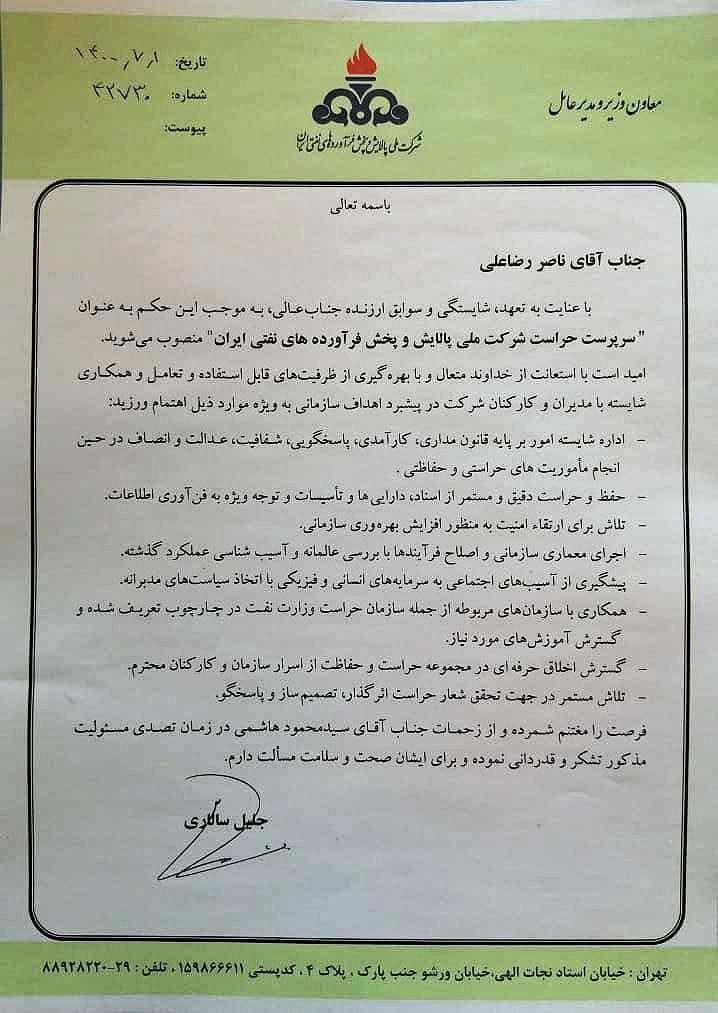 معاون وزیر و مدیرعامل
شرکت ملی پالایش و پخش فرآورده‌های نفتی ایران
تاریخ: ۱۴۰۰/۷/۱
شماره: ۴۲۷۳۰
پیوست:
باسمه تعالی
جناب آقای ناصر رضاعلی
با عنایت به تعهد، شایستگی و سوابق ارزنده جناب‌عالی، به موجب این حکم به عنوان
"سرپرست حراست شرکت ملی پالایش و پخش فرآورده های نفتی ایران" منصوب می‌شوید.
امید است با استعانت از خداوند متعال و با بهره‌گیری از ظرفیت‌های قابل استفاده و تعامل و همکاری
شایسته با مدیران و کارکنان شرکت در پیشبرد اهداف سازمانی به ویژه موارد ذیل اهتمام ورزید:
- اداره شایسته امور بر پایه قانون مداری، کارآمدی، پاسخگویی، شفافیت، عدالت و انصاف در حین
انجام مأموریت های حراستی و حفاظتی .
- حفظ و حراست دقیق و مستمر از اسناد، دارایی‌ها و تأسیسات و توجه ویژه به فن‌آوری اطلاعات.
- تلاش برای ارتقاء امنیت به منظور افزایش بهره‌وری سازمانی.
- اجرای معماری سازمانی و اصلاح فرآیندها با بررسی عالمانه و آسیب شناسی عملکرد گذشته.
- پیشگیری از آسیب‌های اجتماعی به سرمایه‌های انسانی و فیزیکی با اتخاذ سیاست‌های مدبرانه.
- همکاری با سازمان‌های مربوطه از جمله سازمان حراست وزارت نفت در چارچوب تعریف شده و
گسترش آموزش‌های مورد نیاز.
- گسترش اخلاق حرفه ای در مجموعه حراست و حفاظت از اسرار سازمان و کارکنان محترم.
- تلاش مستمر در جهت تحقق شعار حراست اثرگذار، تصمیم ساز و پاسخگو.
فرصت را مغتنم شمرده و از زحمات جناب آقای سیدمحمود هاشمی در زمان تصدی مسئولیت
مذکور تشکر و قدردانی نموده و برای ایشان صحت و سلامت مسألت دارم.
جلیل سالاری
تهران : خیابان استاد نجات الهی،خیابان ورشو جنب پارک ، پلاک ۴ ، کدپستی ۱۵۹۸۶۶۶۱۱ ، تلفن : ۲۹-۸۸۹۲۸۲۲۰